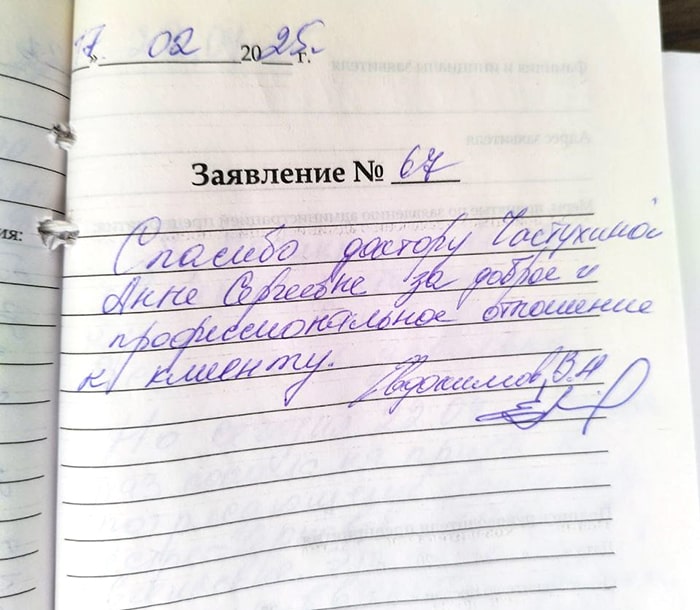 17 » 02 2025 г.
Заявление № 67
ия:
Спасибо доктору Частухиной
Анне Сергеевне за доброе и
профессиональное отношение
к клиенту. Евдокимов В.А